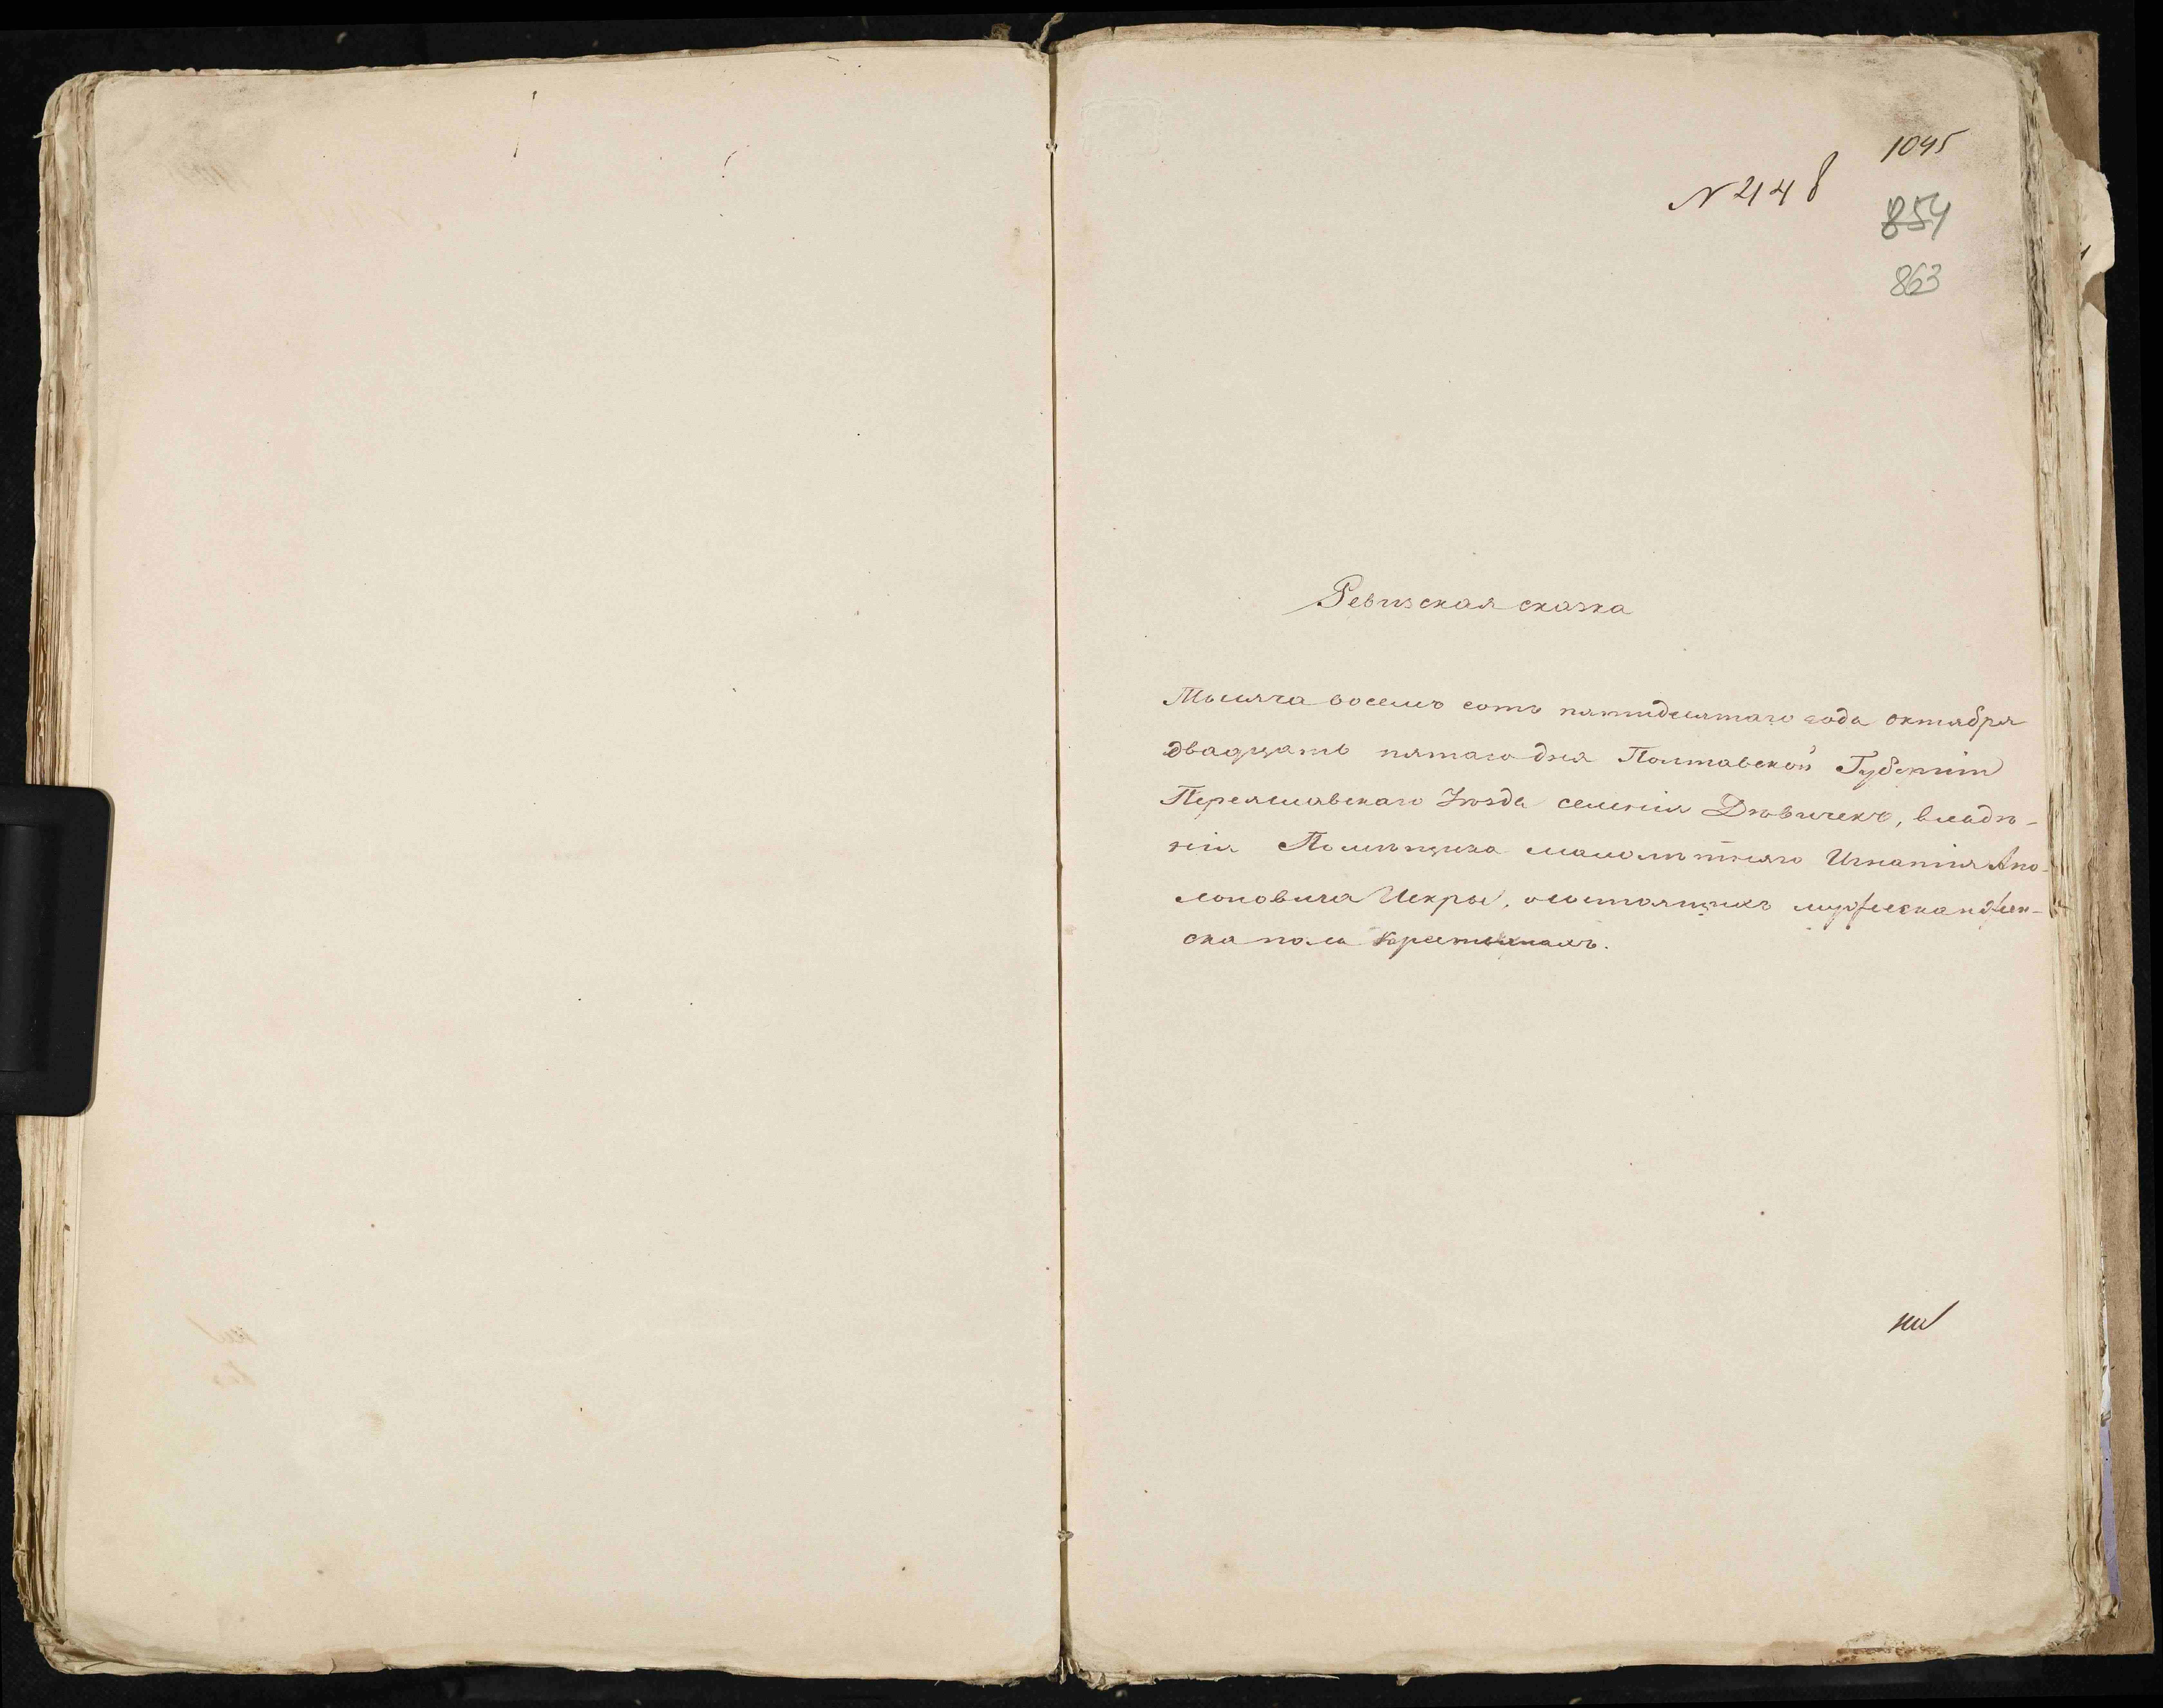 1045
N 448
854
863
Ревизская сказка
Тысяча восемь сотъ пятидесятаго года октября
двадцать пятаго дня Полтавской Губернiи
Переяславскаго Уѣзда селенiя Дѣвичекъ, владѣ-
нiя Помѣщика малолѣтняго Игнатiя Апо-
лоновича Искры, о состоящихъ мужеска и жен-
ска пола крестьянахъ.